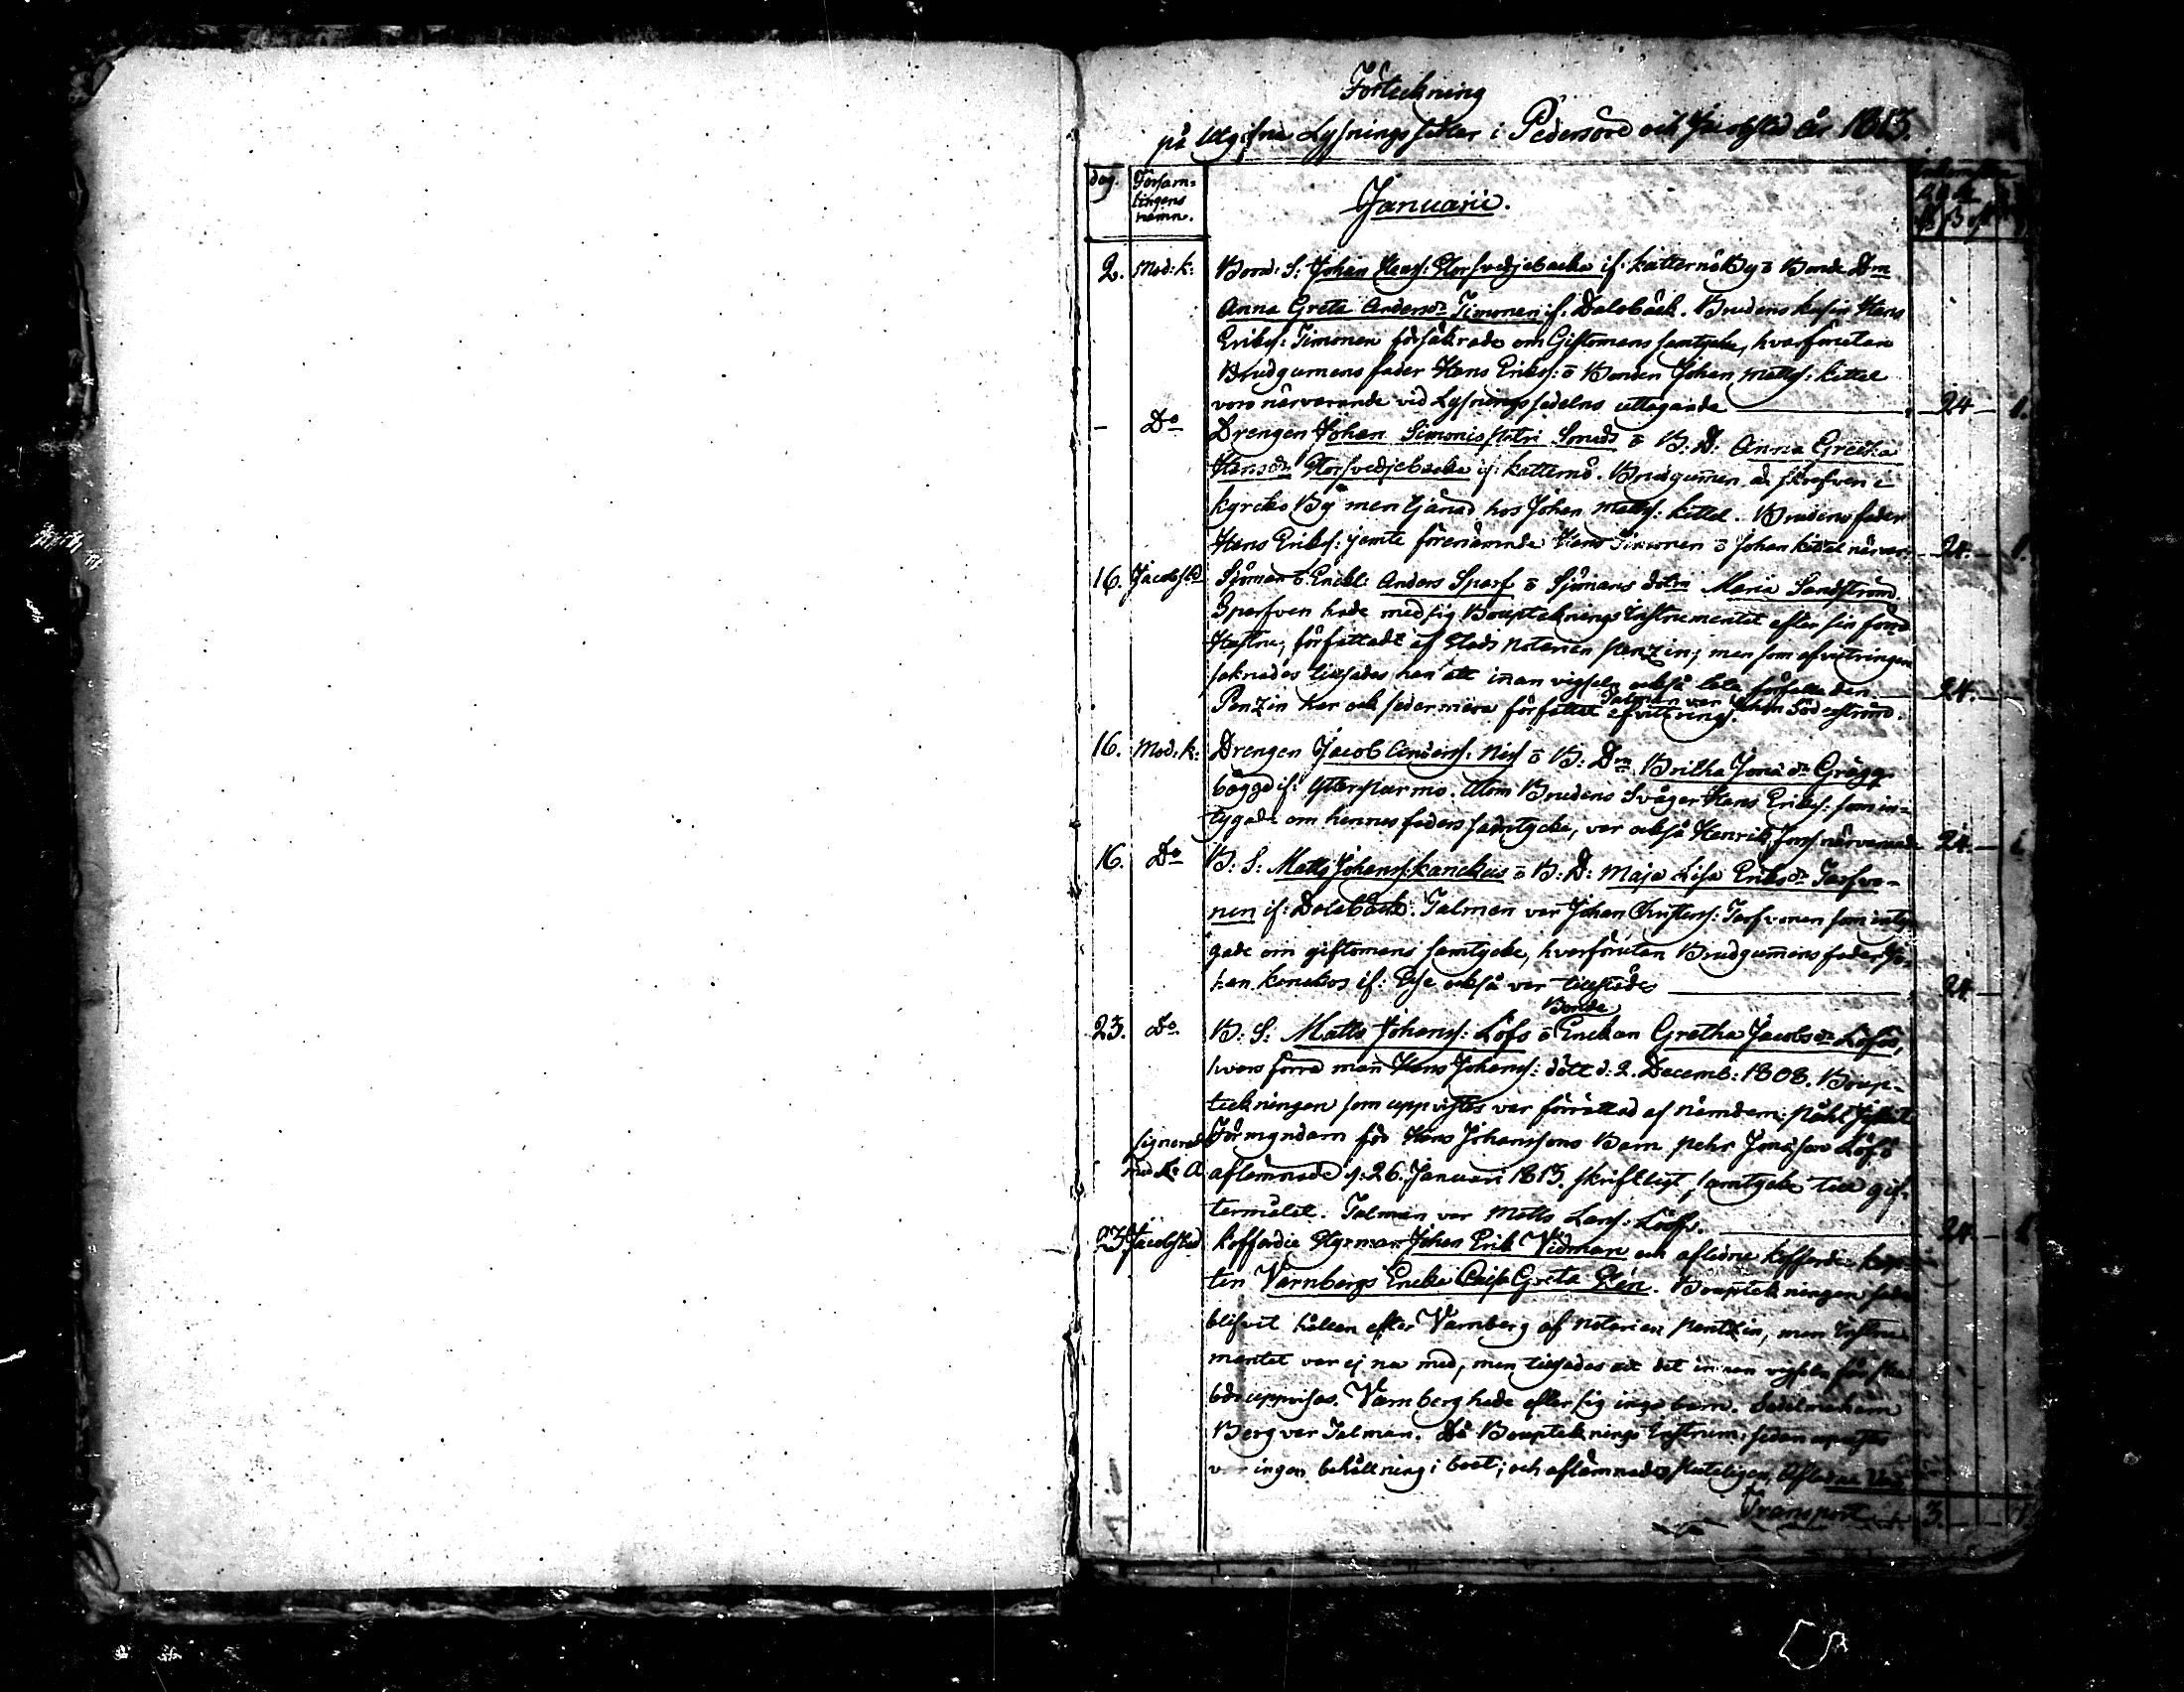 Förteckning
på Utgifna Lysningssedlar i Pedersöre och Jacobstad år 1813.
dag. Församlingens namn.
Januarii.
2. Mod: k: Bond: S: Johan Hans: Storsvedjebacka if: Katternö By o Bonde Dm
Anna Greta Andersdr Timonen if: Dalabäck. Brudens kusin Hans
Eriks: Timonen försäkrade om Giftomans samtycke, hvarförutan
Brudgumens fader Hans Eriks: o Bonden Johan Matts: Kittel
voro närvarande vid Lysningssedelns uttagande 24 1.
- Do Drengen Johan Simonis Petri Smeds o B: D: Anna Greta
Hansdr Storsvedjebacka if: Katternö. Brudgumen är skrefven i
Kyrcko By men tjänad hos Johan Matts: Kittel. Brudens fader
Hans Eriks: jemte förenämnde Hans Timonen o Johan Kittel närvar: 24. 1.
16. Jacobstd Sjöman o Enckl: Anders Sparf o Sjömans dotrn Maria Sandström
Sparfven hade med sig Boupteknings Instrumentet efter sin förra
Hustru, författadt af Stads Notarien Penzin; men som afvitringen
saknades tillsades han att innan vigseln också låta författa den. 24.
Talman var Johan Söderström.
Penzin har ock sedermera författat afvittrings:
16. Mod: k: Drengen Jacob Anders: Nis o B: Dm Britha Jonædr Grägg
böggd if: Ytterpurmo. Utom Brudens Svåger Hans Eriks: som in-
tygade om hennes faders samtycke, var också Henrik Jons: närvarande 24.
16. Do B: S: Matts Johans: Kanckus o B: D: Maja Lisa Eriksdr Tarfvo-
nen if: Dalabäck. Talman var Johan Christers: Tarfvonen som inty-
gade om giftomans samtycke, hvarförutan Brudgumens fader Jo-
han Kanckos if: Esse också var tillstädes 24.
Bonde
23. Do B: S: Matts Johans: Löfs o Enckan Gretha Jacobsdr Löfös,
hvars förra man Hans Johans: dött d: 2. Decemb: 1808. Boup-
teckningen som uppvistes var förrättad af nämdem:
Förmyndarn för Hans Johanssons Barn Pehr Jonasson Löfö
signerad med No A aflemnade d: 26. Januari 1813. skriftligt samtycke till gif-
termålet. Talman var Matts Lars: Löfs. 24.
23 Jacobstad Koffardie Styrman Johan Erik Vidman och aflidne Koffardie Kap-
ten Varnbergs Encka Caisa Greta Elén. Bouptekningen hade
blifvit hållen efter Varnberg af Notarien Pentzin, men Instru-
mentet var ej nu med, men tillsades att det innan vigseln får
uppvisas. Varnberg hade efter sig inga barn. Sadelmakarn
Berg var Talman. Då Boupteknings Instrum: sedan uppvistes
var ingen behållning i boet; och aflämnades
Transport 3.